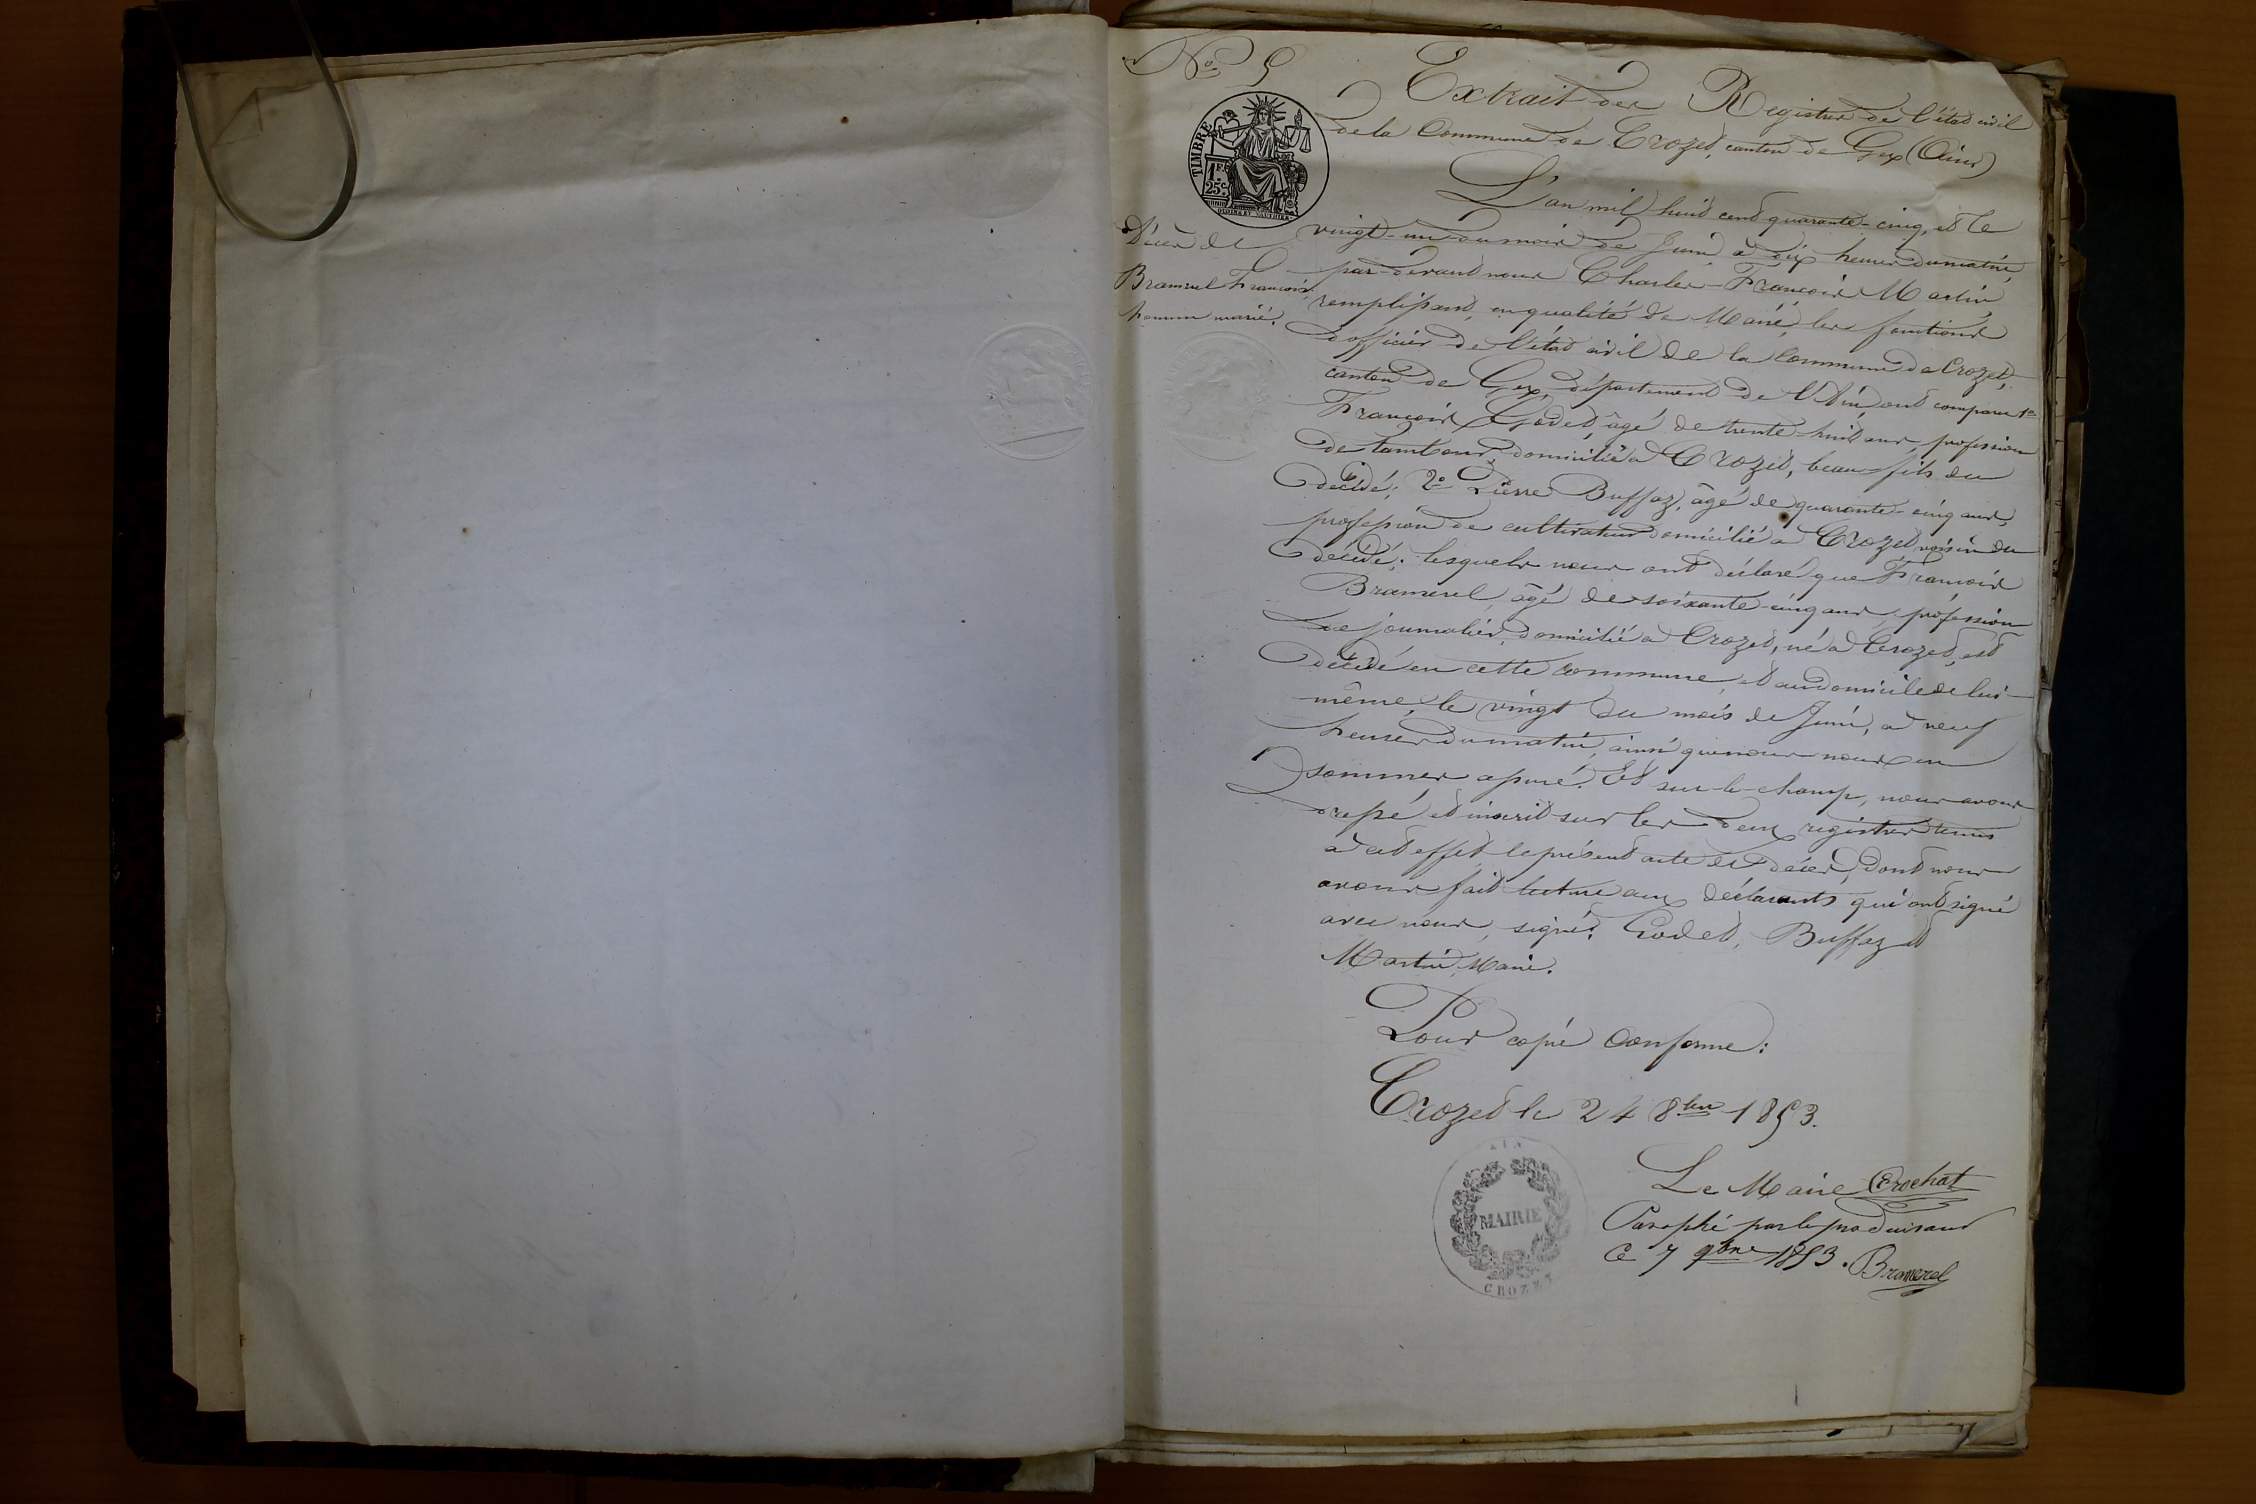 No 5
Extrait des Registres de l'état civil
de la Commune de Crozet, canton de Gex (Ain)
TIMBRE
1 F.
25 c.
L'an mil huit cent quarante-cinq, et le
Décès de
Bramerel François,
homme marié.
vingt-un du mois de Juin à dix heures du matin,
par-devant nous Charles-François Martin,
remplissant, en qualité de Maire, les fonctions
d'officier de l'état civil de la Commune de Crozet,
canton de Gex, département de l'Ain ont comparu 1o
François Godet, âgé de trente-huit ans, profession
de tambour, domicilié à Crozet, beau-fils du
décédé; 2o Pierre Buffaz, âgé de quarante-cinq ans,
profession de cultivateur domicilié à Crozet voisin du
décédé; lesquels nous ont déclaré que François
Bramerel, âgé de soixante-cinq ans, profession
de journalier, domicilié à Crozet, né à Crozet, est
décédé en cette commune, et au domicile de lui-
même, le vingt du mois de Juin, à neuf
heures du matin, ainsi que nous nous en
sommes assuré. Et sur-le-champ, nous avons
dressé et inscrit sur les deux registres tenus
à cet effet le présent acte de décès, dont nous
avons fait lecture aux déclarants qui ont signé
avec nous, signés: Godet, Buffaz et
Martin, Maire.
Pour copie conforme:
Crozet le 24 8bre 1853.
Le Maire Crochat
Paraphé par le produisant
Ce 7 9bre 1853. Bramerel
AIN
MAIRIE
CROZET